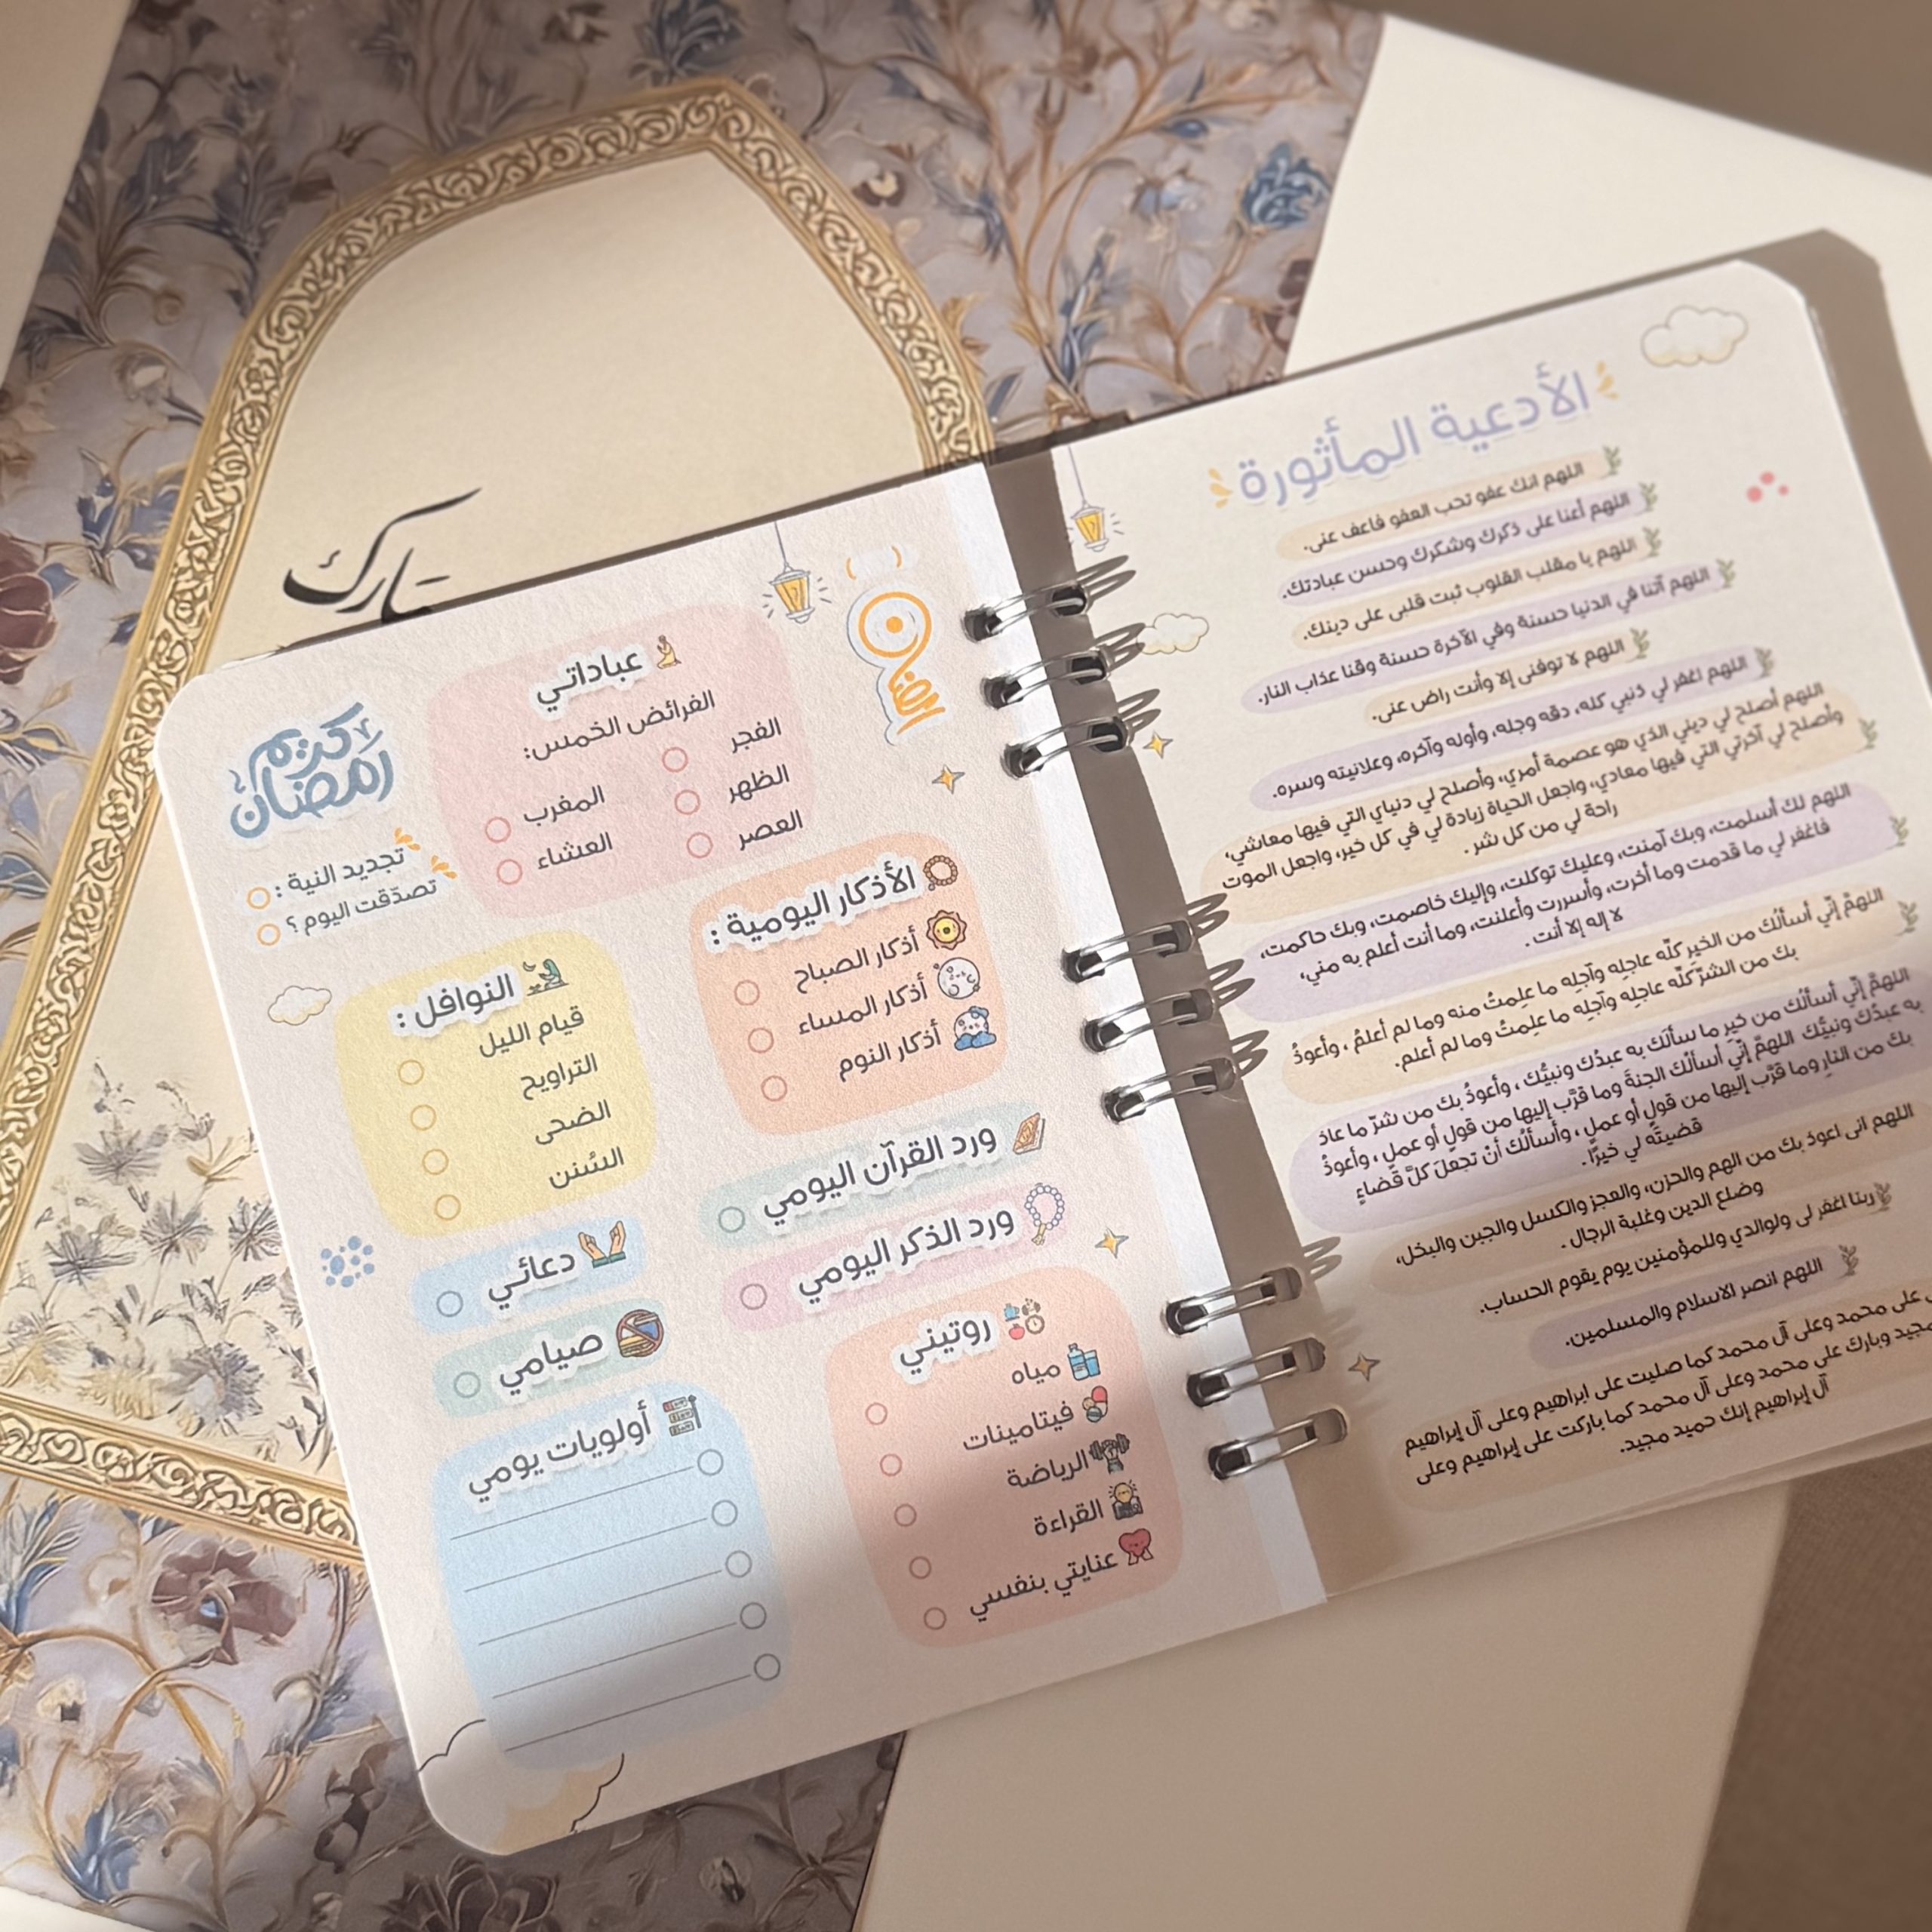 الأدعية المأثورة
اللهم انك عفو تحب العفو فاعف عنى.
اللهم أعنا على ذكرك وشكرك وحسن عبادتك.
اللهم يا مقلب القلوب ثبت قلبى على دينك.
اللهم آتنا في الدنيا حسنة وفي الآخرة حسنة وقنا عذاب النار.
اللهم لا توفنى إلا وأنت راض عنى.
اللهم اغفر لي ذنبي كله، دقه وجله، وأوله وآخره، وعلانيته وسره.
اللهم أصلح لي ديني الذي هو عصمة أمري، وأصلح لي دنياي التي فيها معاشي،
وأصلح لي آخرتي التي فيها معادي، واجعل الحياة زيادة لي في كل خير، واجعل الموت
راحة لي من كل شر.
اللهم لك أسلمت، وبك آمنت، وعليك توكلت، وإليك خاصمت، وبك حاكمت،
فاغفر لي ما قدمت وما أخرت، وأسررت وأعلنت، وما أنت أعلم به مني،
لا إله إلا أنت.
اللهمَّ إنِّي أسألُك من الخيرِ كلِّه عاجلِه وآجلِه ما علِمتُ منه وما لم أعلمُ، وأعوذُ
بك من الشرِّ كلِّه عاجلِه وآجلِه ما علِمتُ وما لم أعلم.
اللهمَّ إنِّي أسألُك من خيرِ ما سألَك به عبدُك ونبيُّك، وأعوذُ بك من شرِّ ما عاذ
به عبدُك ونبيُّك اللهمَّ إنِّي أسألُك الجنةَ وما قرَّب إليها من قولٍ أو عملٍ، وأعوذُ
بك من النارِ وما قرَّب إليها من قولٍ أو عملٍ، وأسألُك أنْ تجعلَ كلَّ قضاءٍ
قضيتَه لي خيرًا.
اللهم انى اعوذ بك من الهم والحزن، والعجز والكسل والجبن والبخل،
وضلع الدين وغلبة الرجال.
ربنا اغفر لى ولوالدي وللمؤمنين يوم يقوم الحساب.
اللهم انصر الاسلام والمسلمين.
على محمد وعلى آل محمد كما صليت على ابراهيم وعلى آل إبراهيم
مجيد وبارك على محمد وعلى آل محمد كما باركت على إبراهيم وعلى
آل إبراهيم إنك حميد مجيد.
رمضان
عباداتي
الفرائض الخمس:
الفجر
الظهر
العصر
المغرب
العشاء
رمضان كريم
تجديد النية :
تصدّقت اليوم ؟
الأذكار اليومية :
أذكار الصباح
أذكار المساء
أذكار النوم
النوافل :
قيام الليل
التراويح
الضحى
السُنن
ورد القرآن اليومي
ورد الذكر اليومي
دعائي
صيامي
روتيني
مياه
فيتامينات
الرياضة
القراءة
عنايتي بنفسي
أولويات يومي